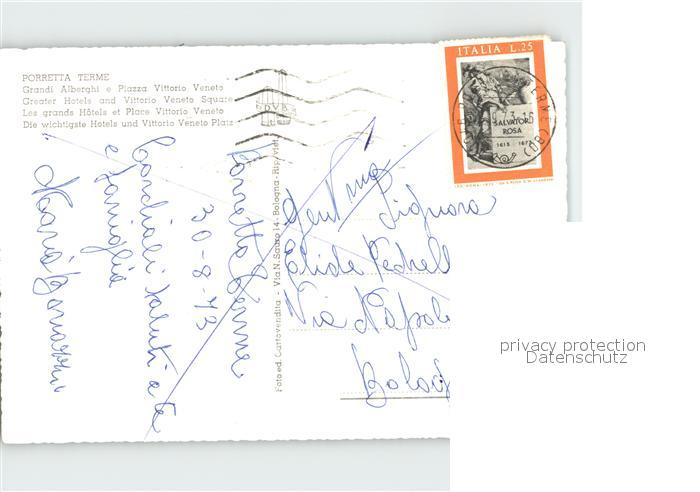 PORRETTA TERME
Grandi Alberghi e Piazza Vittorio Veneto
Greater Hotels and Vittorio Veneto Square
Les grands Hôtels et Place Vittorio Veneto
Die wichtigste Hotels und Vittorio Veneto Platz
ITALIA L.25
SALVATOR
ROSA
1615 - 1673
Porretta Terme
30-8-73
Cordiali saluti a te
e famiglia
Maria
Foto ed. Cartovendita - Via N. Sauro 14 - Bologna - Rip. viet.
Gent.ma
Signora
Elide
Via Napol
Bolog
privacy protection
Datenschutz